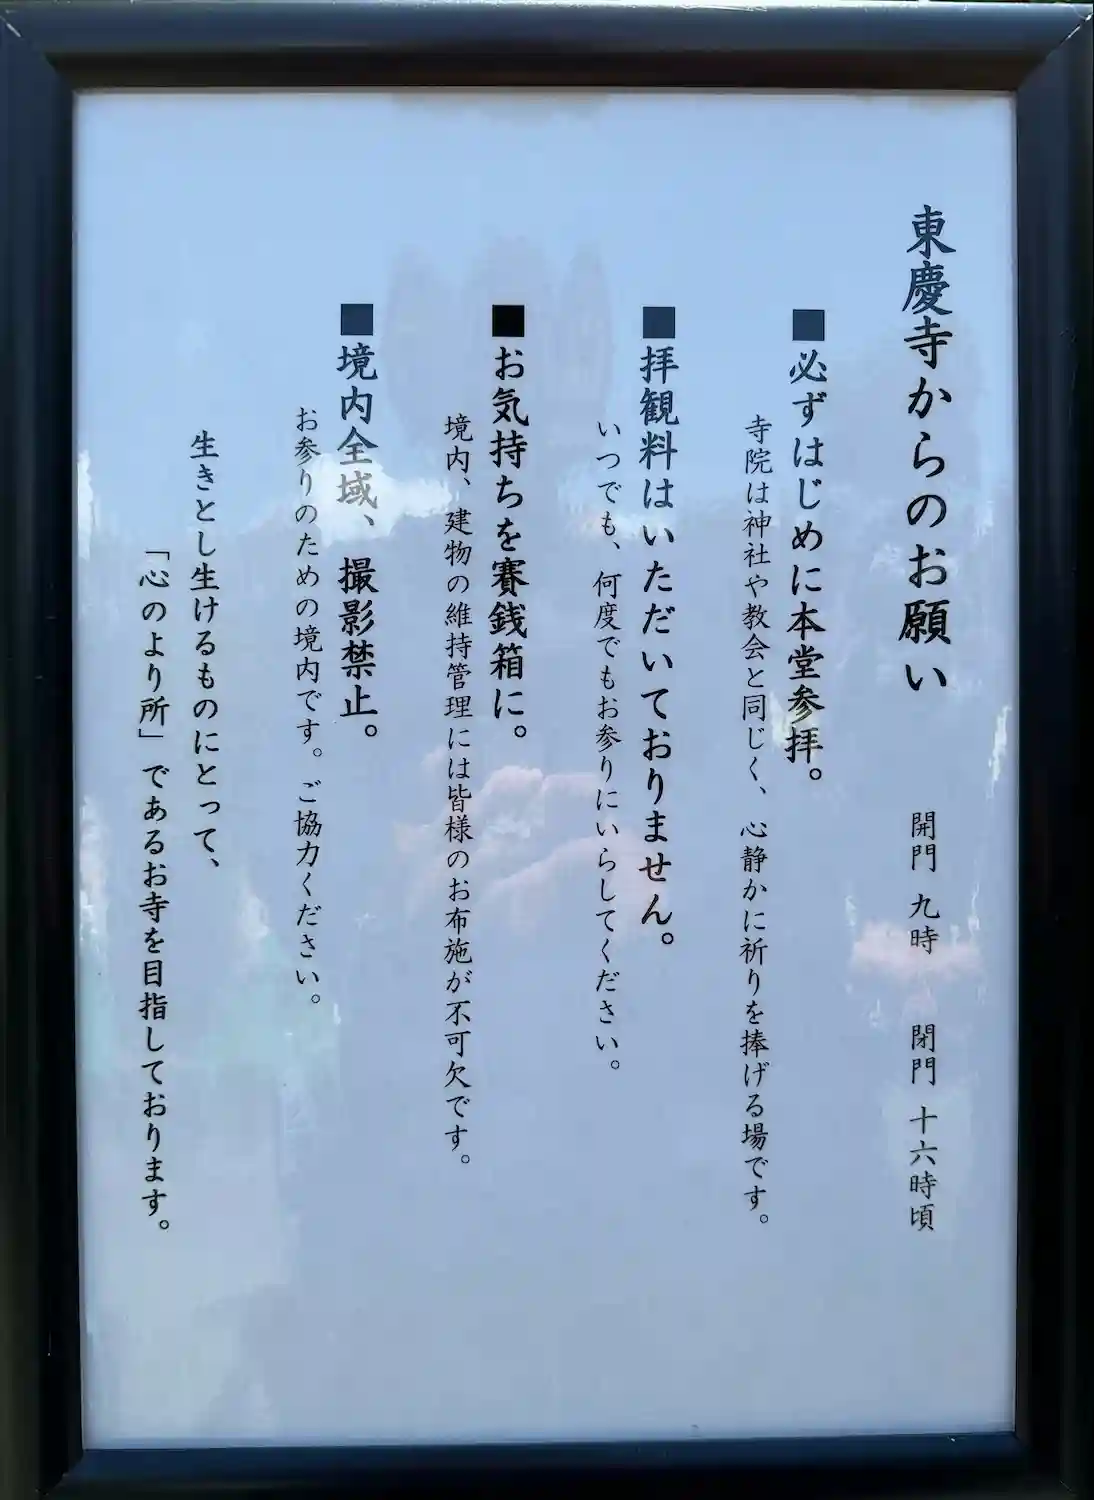 東慶寺からのお願い　開門 九時　閉門 十六時頃
■必ずはじめに本堂参拝。
寺院は神社や教会と同じく、心静かに祈りを捧げる場です。
■拝観料はいただいておりません。
いつでも、何度でもお参りにいらしてください。
■お気持ちを賽銭箱に。
境内、建物の維持管理には皆様のお布施が不可欠です。
■境内全域、撮影禁止。
お参りのための境内です。ご協力ください。
生きとし生けるものにとって、
「心のより所」であるお寺を目指しております。